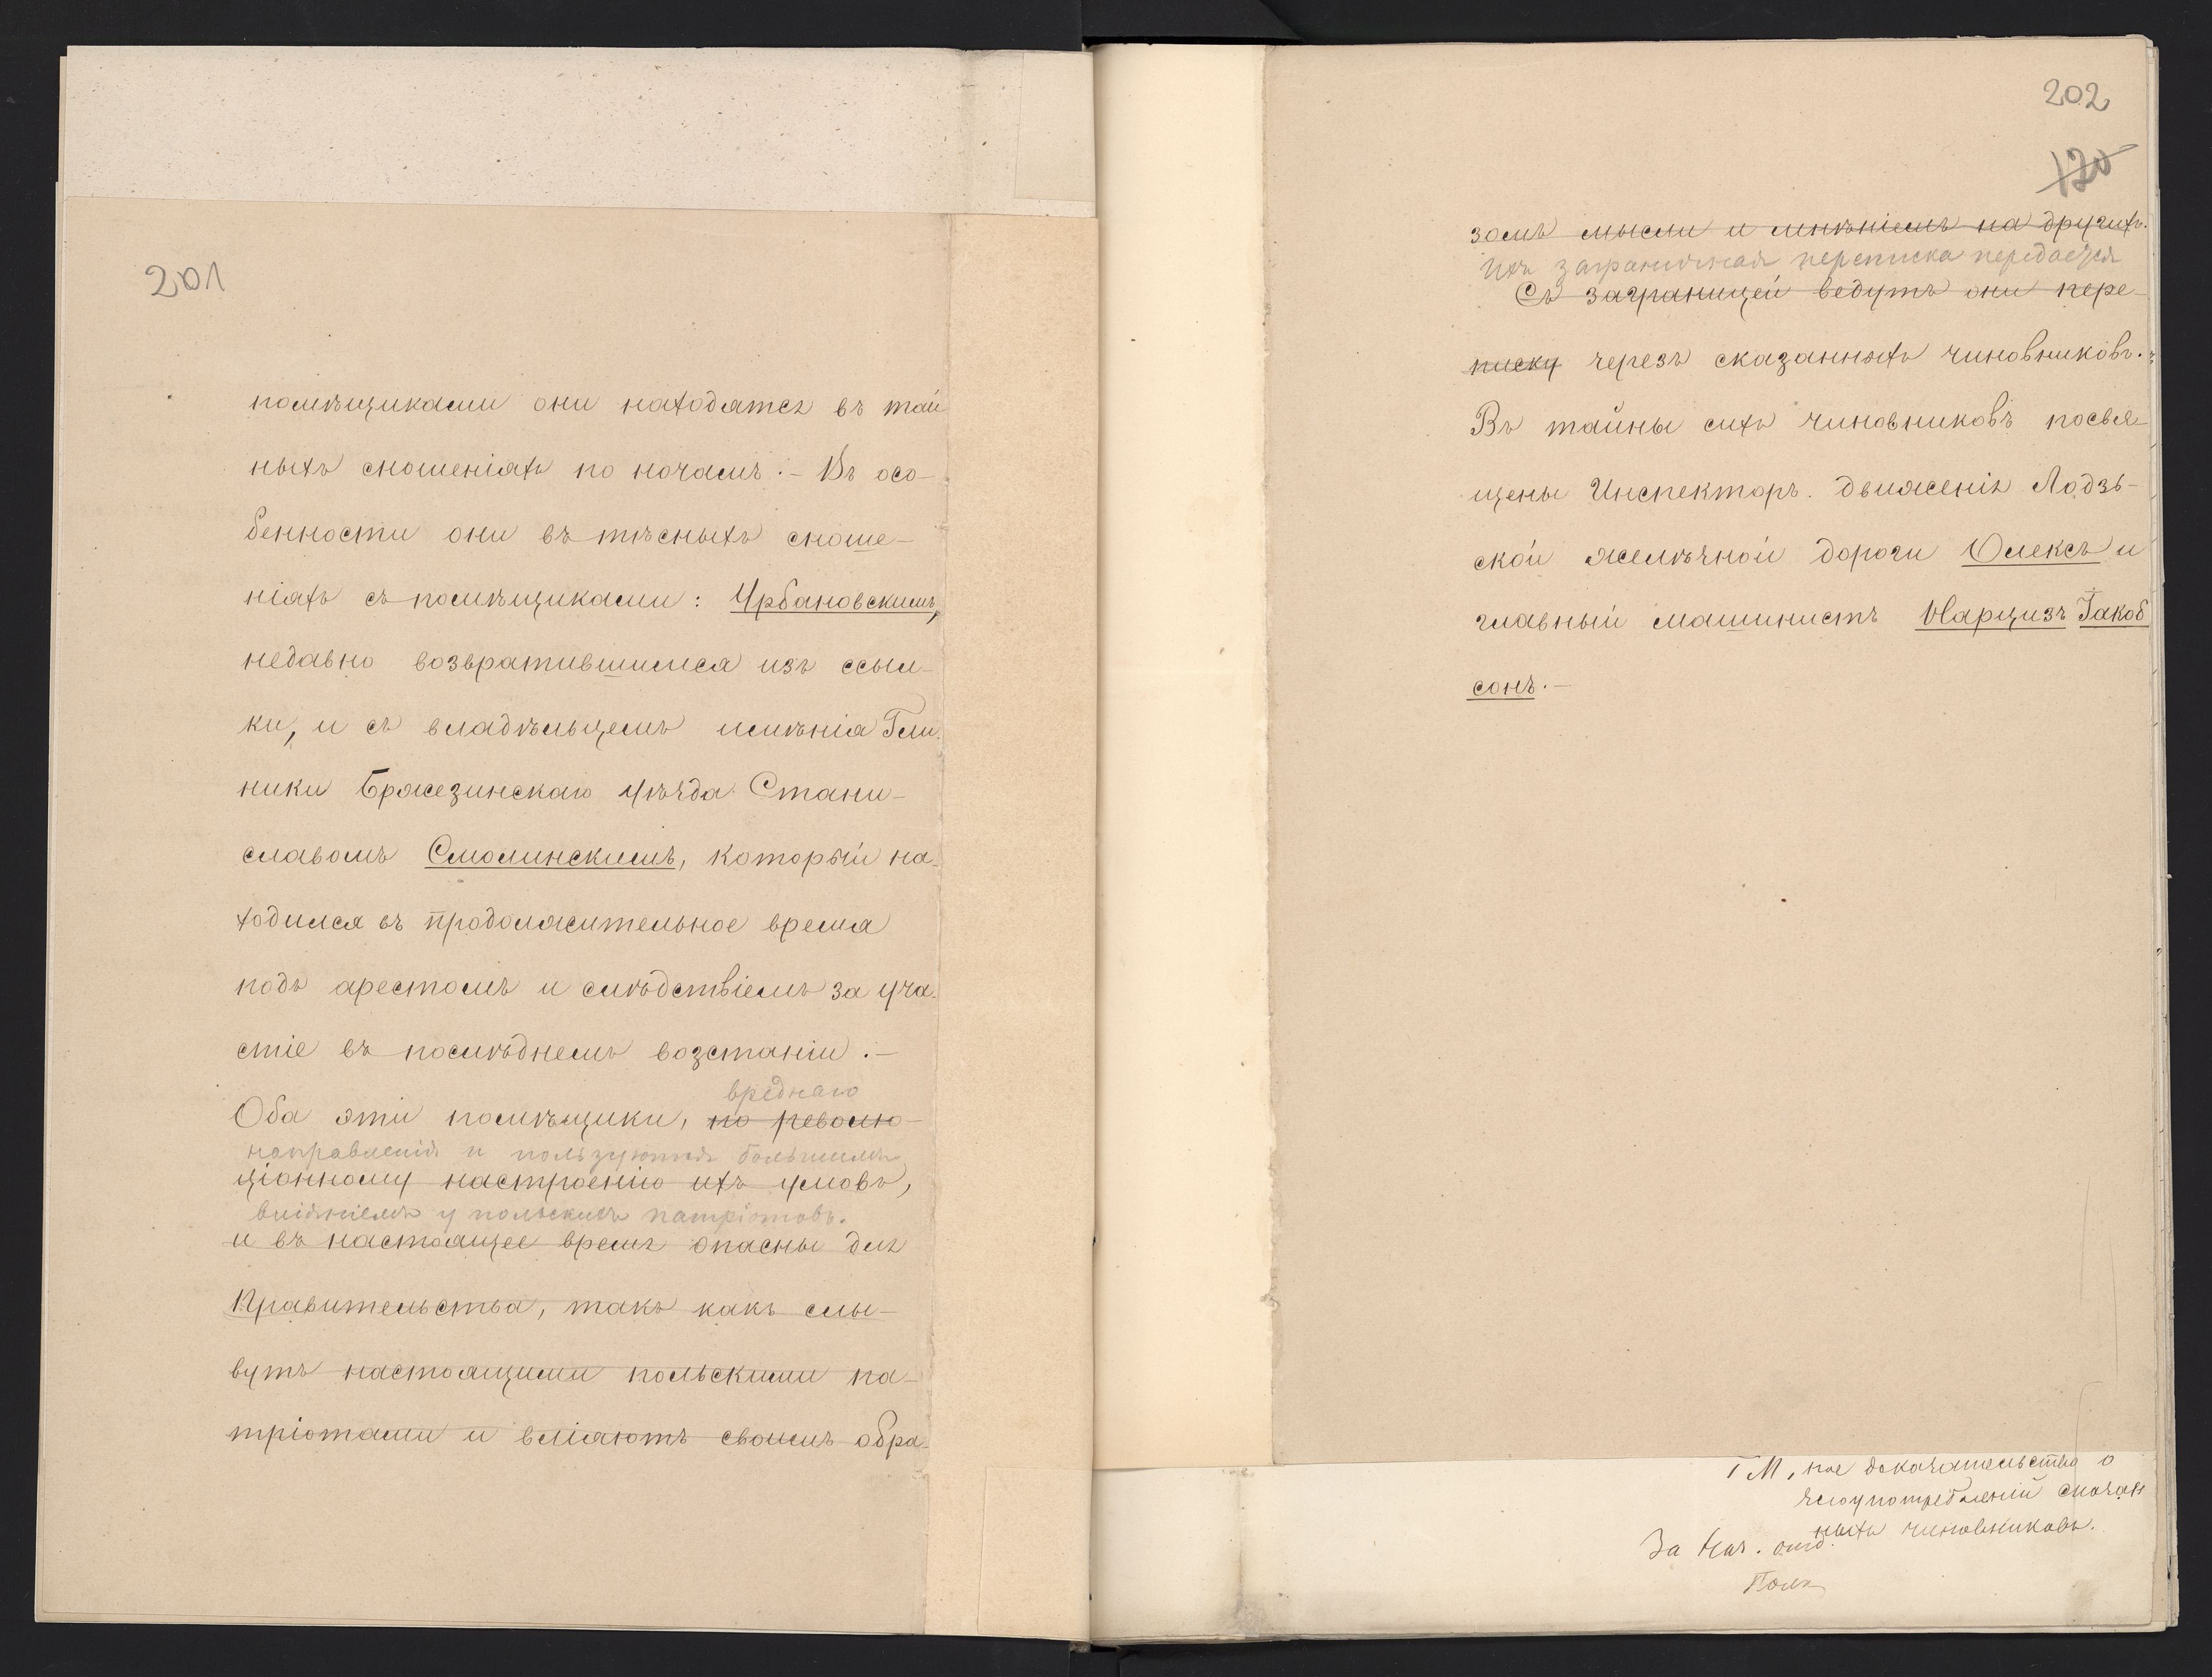 201
помѣщиками они находятся въ тай
ныхъ сношеніяхъ по ночамъ.– Въ осо-
бенности они въ тѣсныхъ сноше-
ніяхъ съ помѣщиками: Урбановскимъ,
недавно возвратившимся изъ ссыл-
ки, и съ владѣльцемъ имѣнія Гли-
ники Бржезинскаго уѣзда Стани-
славомъ Смолинскимъ, который на-
ходился въ продолжительное время
подъ арестомъ и слѣдствіемъ за уча-
стіе въ послѣднемъ возстаніи.–
вреднаго
Оба эти помѣщики, по револю-
направленія и пользуются большимъ
ціонному настроенію ихъ умовъ,
вліяніемъ у польскихъ патріотовъ.
и въ настоящее время опасны для
Правительства, такъ какъ слы-
вутъ настоящими польскими па-
тріотами и вліяютъ своимъ обра-
202
120
зомъ мысли и мнѣніемъ на другихъ.
Ихъ заграничная переписка передается
Съ заграницей ведутъ они пере-
писку черезъ сказанныхъ чиновниковъ.
Въ тайны сихъ чиновниковъ посвя-
щены Инспекторъ движенія Лодзь-
ской желѣзной дороги Олексъ и
главный машинистъ Нарцизъ Іакоб
сонъ.–
доказательства о
злоупотребленіи сказан
ныхъ чиновниковъ.
За Нач.